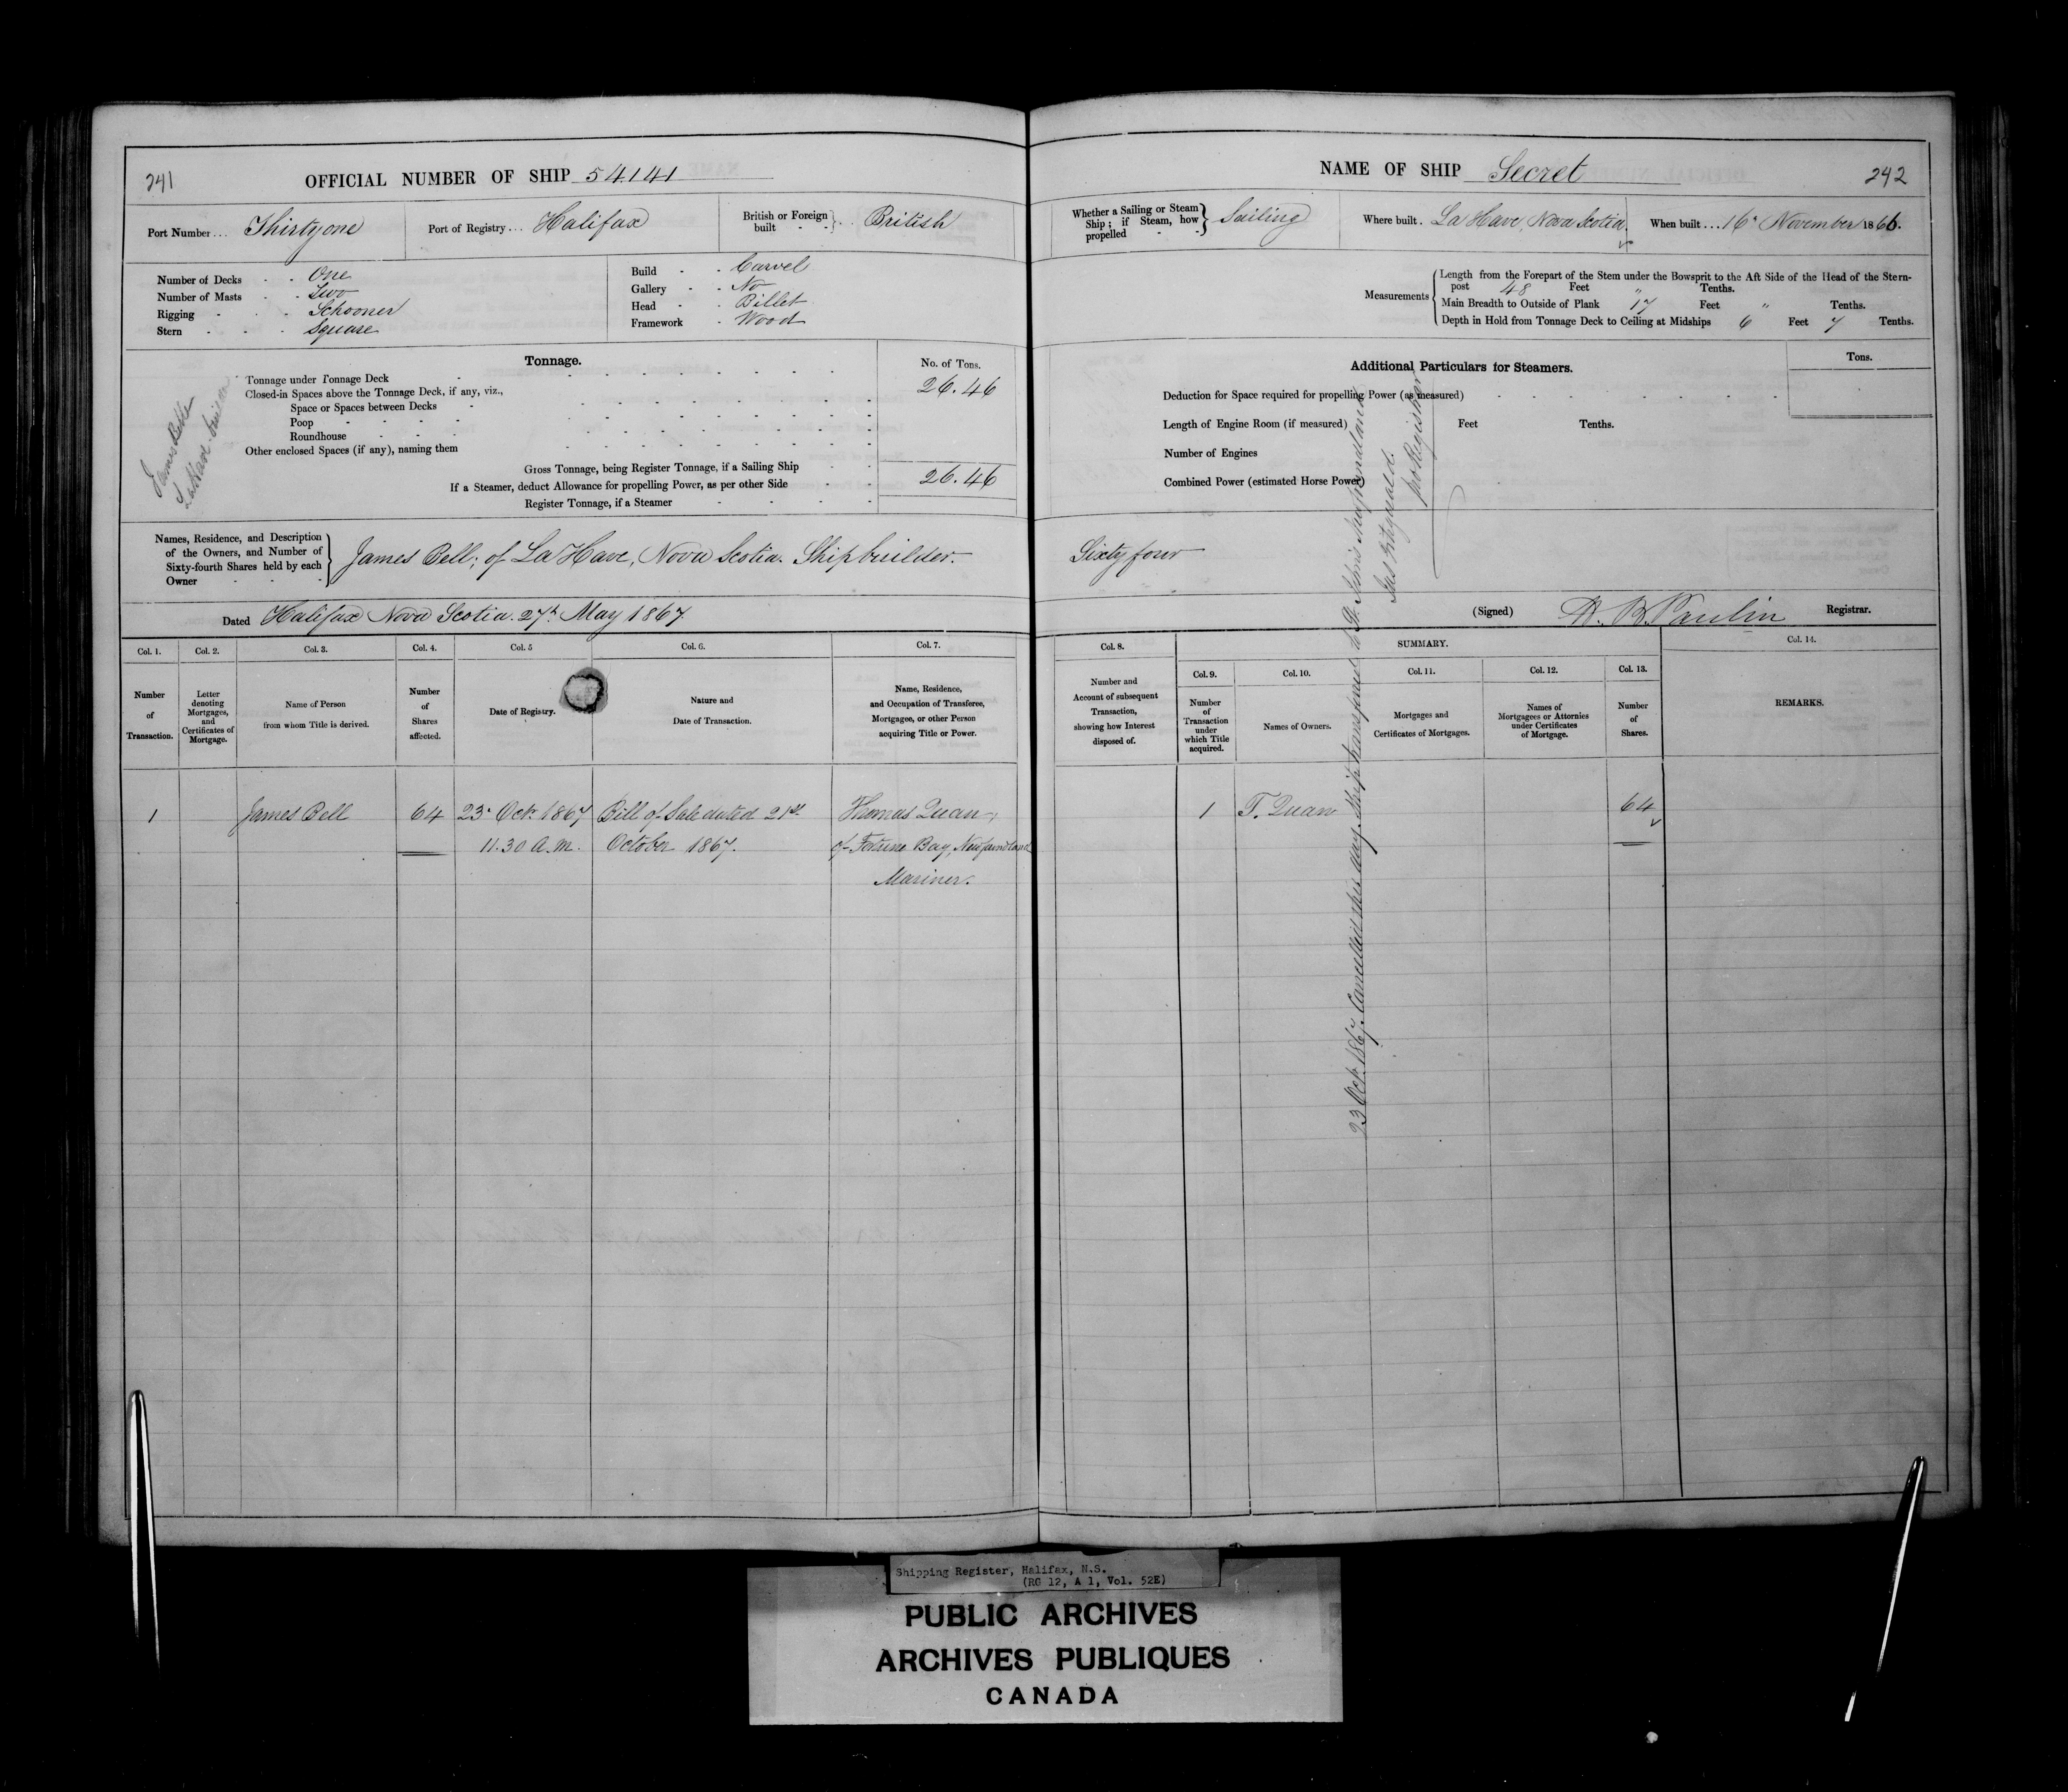 241
OFFICIAL NUMBER OF SHIP 54141
Port Number... Thirty one
Port of Registry... Halifax
British or Foreign built - - } . . British
Number of Decks - - One
Number of Masts - - Two
Rigging - - - Schooner
Stern - - - Square
Build - - Carvel
Gallery - - No
Head - - Billet
Framework - Wood
Tonnage.
No. of Tons.
Tonnage under Tonnage Deck 26.46
Closed-in Spaces above the Tonnage Deck, if any, viz.,
Space or Spaces between Decks
Poop
Roundhouse
Other enclosed Spaces (if any), naming them
Gross Tonnage, being Register Tonnage, if a Sailing Ship 26.46
If a Steamer, deduct Allowance for propelling Power, as per other Side
Register Tonnage, if a Steamer
James Bell
LaHave builder
Names, Residence, and Description
of the Owners, and Number of
Sixty-fourth Shares held by each
Owner
James Bell; of La Have, Nova Scotia. Shipbuilder.
Dated Halifax Nova Scotia. 27th May 1867
Col. 1.
Number
of
Transaction.
Col. 2.
Letter
denoting
Mortgages,
and
Certificates of
Mortgage.
Col. 3.
Name of Person
from whom Title is derived.
Col. 4.
Number
of
Shares
affected.
Col. 5
Date of Registry.
Col. 6.
Nature and
Date of Transaction.
Col. 7.
Name, Residence,
and Occupation of Transferee,
Mortgagee, or other Person
acquiring Title or Power.
1 James Bell 64 23d Oct. 1867 Bill of Sale dated 21st Thomas Quan,
11.30 A.M. October 1867. of Fortune Bay, Newfoundland
Mariner.
NAME OF SHIP Secret
242
Whether a Sailing or Steam
Ship; if Steam, how
propelled - -
Sailing
Where built. La Have, Nova Scotia.
When built...16th November 1866.
Measurements
Length from the Forepart of the Stem under the Bowsprit to the Aft Side of the Head of the Stern-
post 48 Feet " Tenths.
Main Breadth to Outside of Plank 17 Feet " Tenths.
Depth in Hold from Tonnage Deck to Ceiling at Midships 6 Feet 7 Tenths.
Additional Particulars for Steamers.
Tons.
Deduction for Space required for propelling Power (as measured)
Length of Engine Room (if measured) Feet Tenths.
Number of Engines
Combined Power (estimated Horse Power)
Sixty four
(Signed) H. B. Paulin Registrar.
Col. 8.
Number and
Account of subsequent
Transaction,
showing how Interest
disposed of.
SUMMARY.
Col. 9.
Number
of
Transaction
under
which Title
acquired.
Col. 10.
Names of Owners.
Col. 11.
Mortgages and
Certificates of Mortgages.
Col. 12.
Names of
Mortgagees or Attornies
under Certificates
of Mortgage.
Col. 13.
Number
of
Shares.
Col. 14.
REMARKS.
1 T. Quan 64
23 Oct. 1867. Cancelled this day. Ship transferred to St. Johns Newfoundland
Jas Fitzgerald.
pro Registrar
Shipping Register, Halifax, N.S.
(RG 12, A 1, Vol. 52E)
PUBLIC ARCHIVES
ARCHIVES PUBLIQUES
CANADA